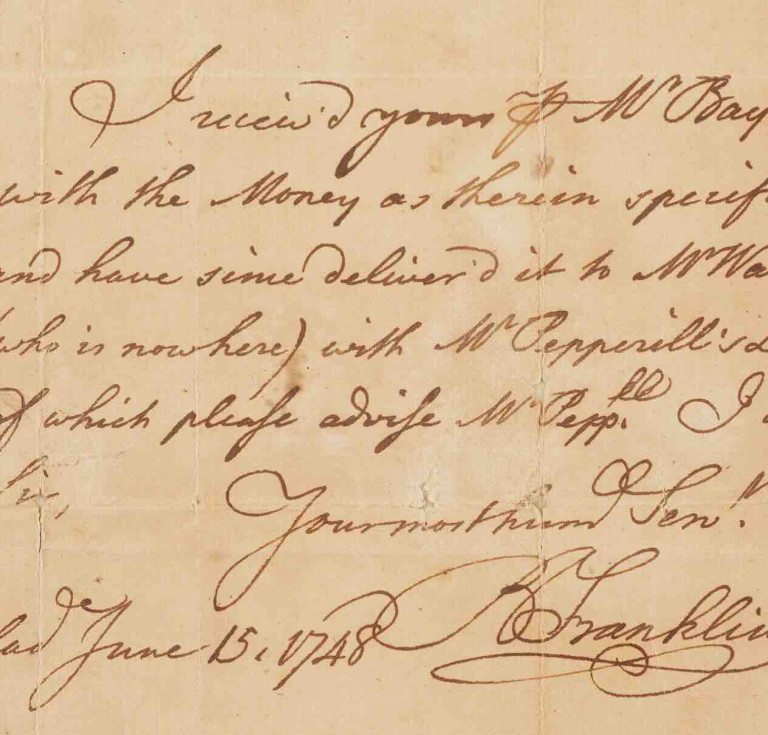 I receiv'd yours ⅌ Mr Bay
with the Money as therein specif
and have since deliver'd it to Mr Wa
(who is now here) with Mr Pepperill's
of which please advise Mr Pepp.ll I
Sir,
Your most humd Serv.t
lade June 15, 1748 B Franklin